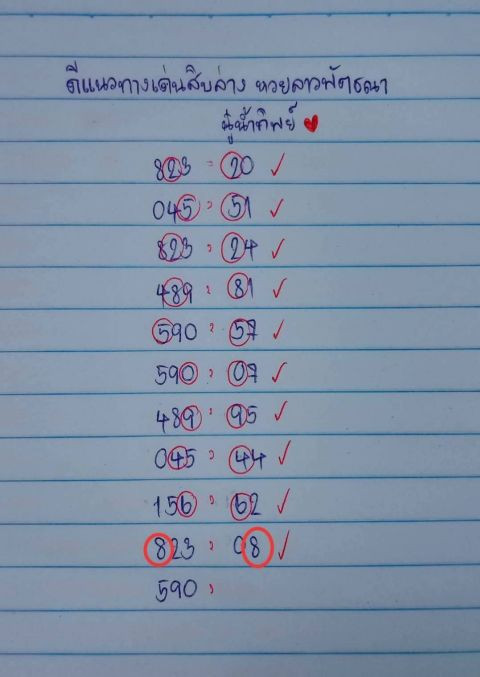 ดีแนวทางเด่นสิบล่าง หวยลาวพัฒนา
นู๋น้ำทิพย์ ❤
823 = 20 ✓
045 = 51 ✓
823 = 24 ✓
489 = 81 ✓
590 = 57 ✓
590 = 07 ✓
489 = 95 ✓
045 = 44 ✓
156 = 62 ✓
823 = 08 ✓
590 =